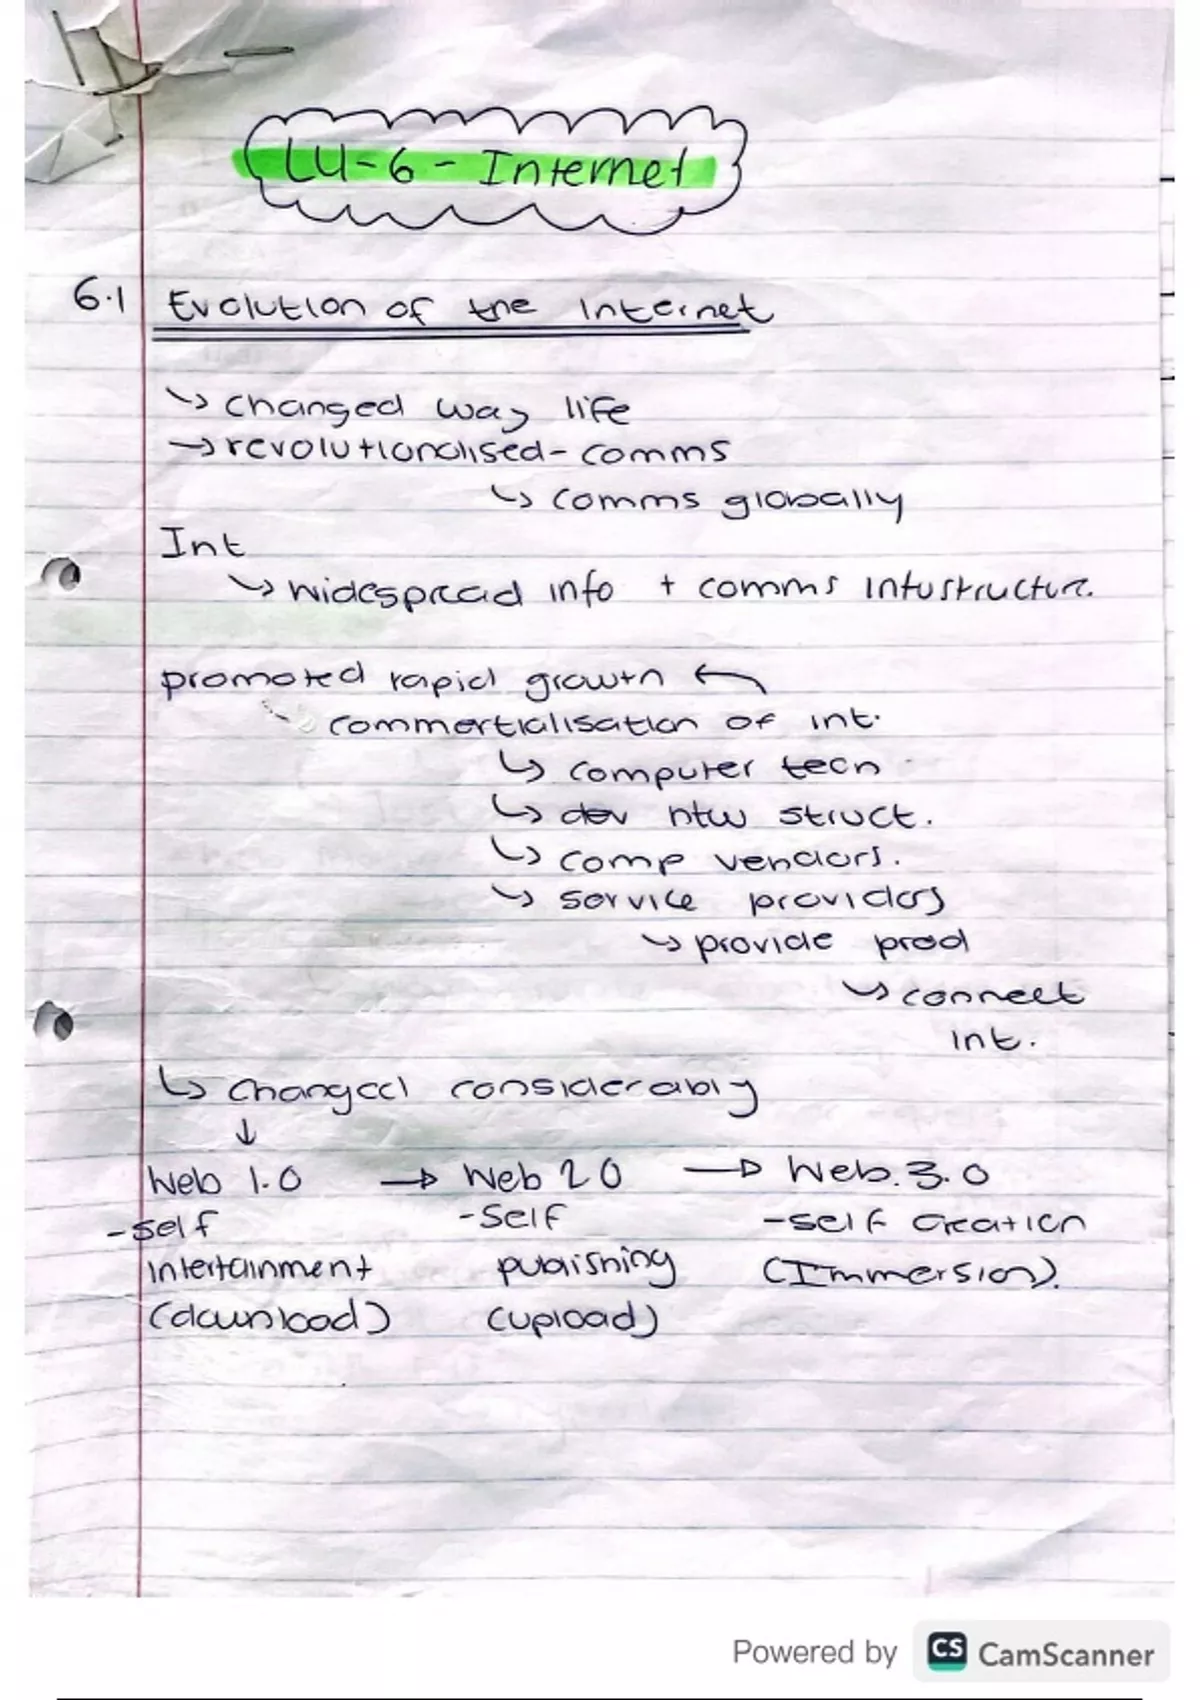 LU-6 - Internet
6.1 Evolution of the Internet
↳ changed way life
→ revolutionalised - comms
↳ comms globally
Int
↳ widespread info + comms intustructure.
promoted rapid growth ←
commertialisation of int.
↳ computer tech
↳ dev ntw struct.
↳ comp vendors.
↳ service providers
↳ provide prod
↳ connect
int.
↳ changed considerably
↓
Web 1.0 → Web 2.0 → Web.3.0
-self -self -self creation
intertainment publishing (Immersion).
(download) (upload)
Powered by CS CamScanner